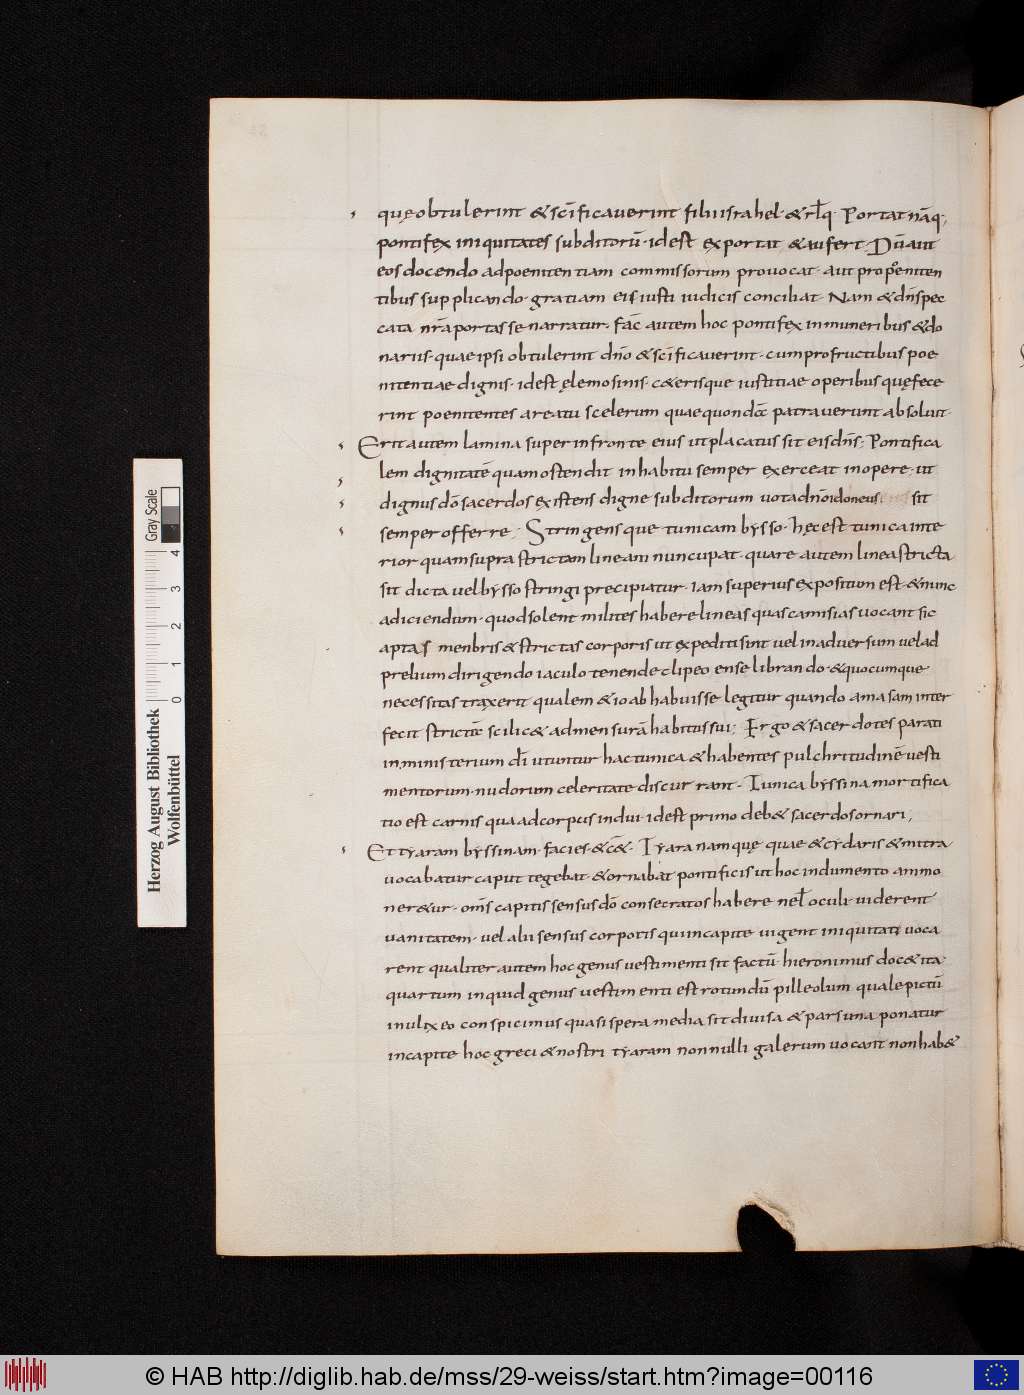 quę obtulerint & sc̄ificauerint filii israhel · & rƚq · Portat nāq;
pontifex iniquitates subditorū · id est exportat & aufert · Dū aut
eos docendo ad poenitentiam commissorum prouocat · aut pro poeniten
tibus supplicando · gratiam eis iusti iudicis conciliat · Nam & dn̄s pec
cata nr̄a portasse narratur · fac̄ autem hoc pontifex in muneribus & do
nariis · quae ipsi obtulerint dn̄o & sc̄ificauerint · cum pro fructibus poe
nitentiae dignis · id est ęlemosinis · c&erisque iustitiae operibus quę fece
rint poenitentes a reatu scelerum quae quondā patrauerunt absoluit ·
Erit autem lamina super in fronte eius ut placatus sit eis dn̄s ; Pontifica
lem dignitatē quam ostendit in habitu semper exerceat in opere · ut
dignus dō sacerdos existens digne subditorum uota dn̄o idoneus sit
semper offerre ; Stringensque tunicam bysso · hęc est tunica inte
rior quam supra strictam lineam nuncupat · quare autem linea stricta
sit dicta uel bysso stringi precipiatur · iam superius expositum est · & nunc
adiciendum · quod solent milites habere lineas quas camisias uocant sic
aptas menbris & strictas corporis ut expediti sint uel in aduersum uel ad
prelium dirigendo iaculo tenende clipeo ense librando · & quocumque
necessitas traxerit qualem & ioab habuisse legitur quando amasam inter
fecit strictā scilic& ad mensurā habitus sui ; Ergo & sacerdotes parati
in ministerium dī utuntur hac tunica & habentes pulchritudinē uesti
mentorum · nudorum celeritate discurrant · Tunica byssina mortifica
tio est carnis qua ad corpus indui · id est primo deb& sacerdos ornari ;
Et tyaram byssinam · facies · & c& · Tyara namquę quae & cydaris & mitra
uocabatur caput tegebat & ornabat pontificis ut hoc indumento ammo
ner&ur · om̄s capitis sensus dō consecratos habere nel oculi uiderent
uanitatem · uel alii sensus corporis qui in capite uigent iniquitati uoca
rent qualiter autem hoc genus uestimenti sit factū · hieronimus doc& ita ·
quartum inquid genus uestimenti est rotundū pilleolum quale pictū
in ulixeo conspicimus quasi spera media sit diuisa & pars una ponatur
in capite hoc greci & nostri tyaram nonnulli galerum uocant non hab&
Herzog August Bibliothek
Wolfenbüttel
0 1 2 3 4
Gray Scale
© HAB http://diglib.hab.de/mss/29-weiss/start.htm?image=00116